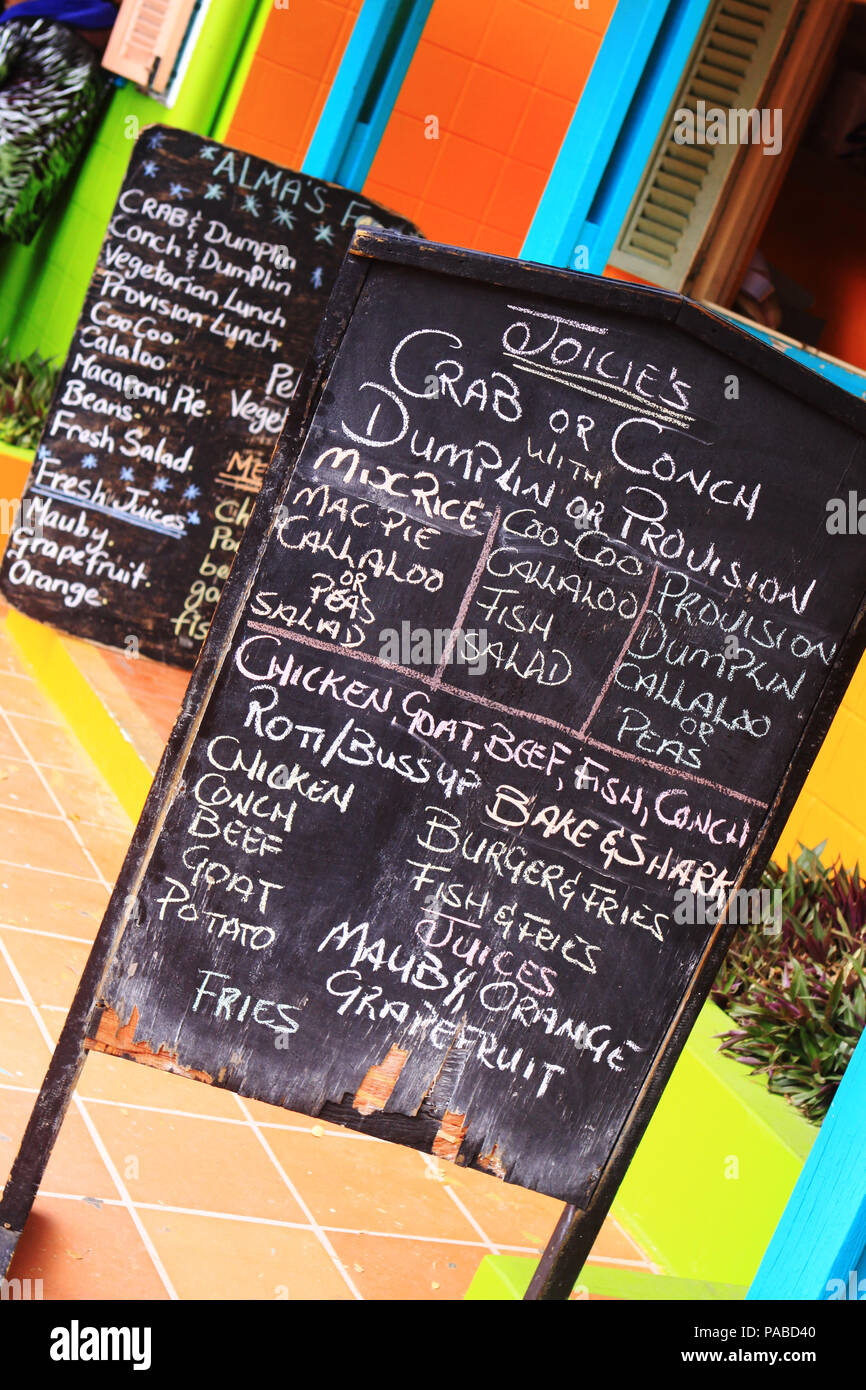 ALMA'S
CRAB & Dumplin
Conch & Dumplin
Vegetarian Lunch
Provision Lunch
CooCoo.
Calaloo.
Macaroni Pie.
Beans.
Fresh Salad.
Fresh Juices
Mauby.
Grapefruit.
Orange.
JOICIE'S
CRAB OR CONCH
WITH
DUMPLIN OR PROVISION
MIX RICE
MAC PIE
CALLALOO
OR
PEAS
SALAD
COO-COO
CALLALOO
FISH
SALAD
PROVISION
DUMPLIN
CALLALOO
OR
PEAS
CHICKEN, GOAT, BEEF, FISH, CONCH
ROTI/BUSS UP
CHICKEN
CONCH
BEEF
GOAT
POTATO
FRIES
BAKE & SHARK
BURGER & FRIES
FISH & FRIES
JUICES
MAUBY, ORANGE
GRAPEFRUIT
alamy
Image ID: PABD40
www.alamy.com